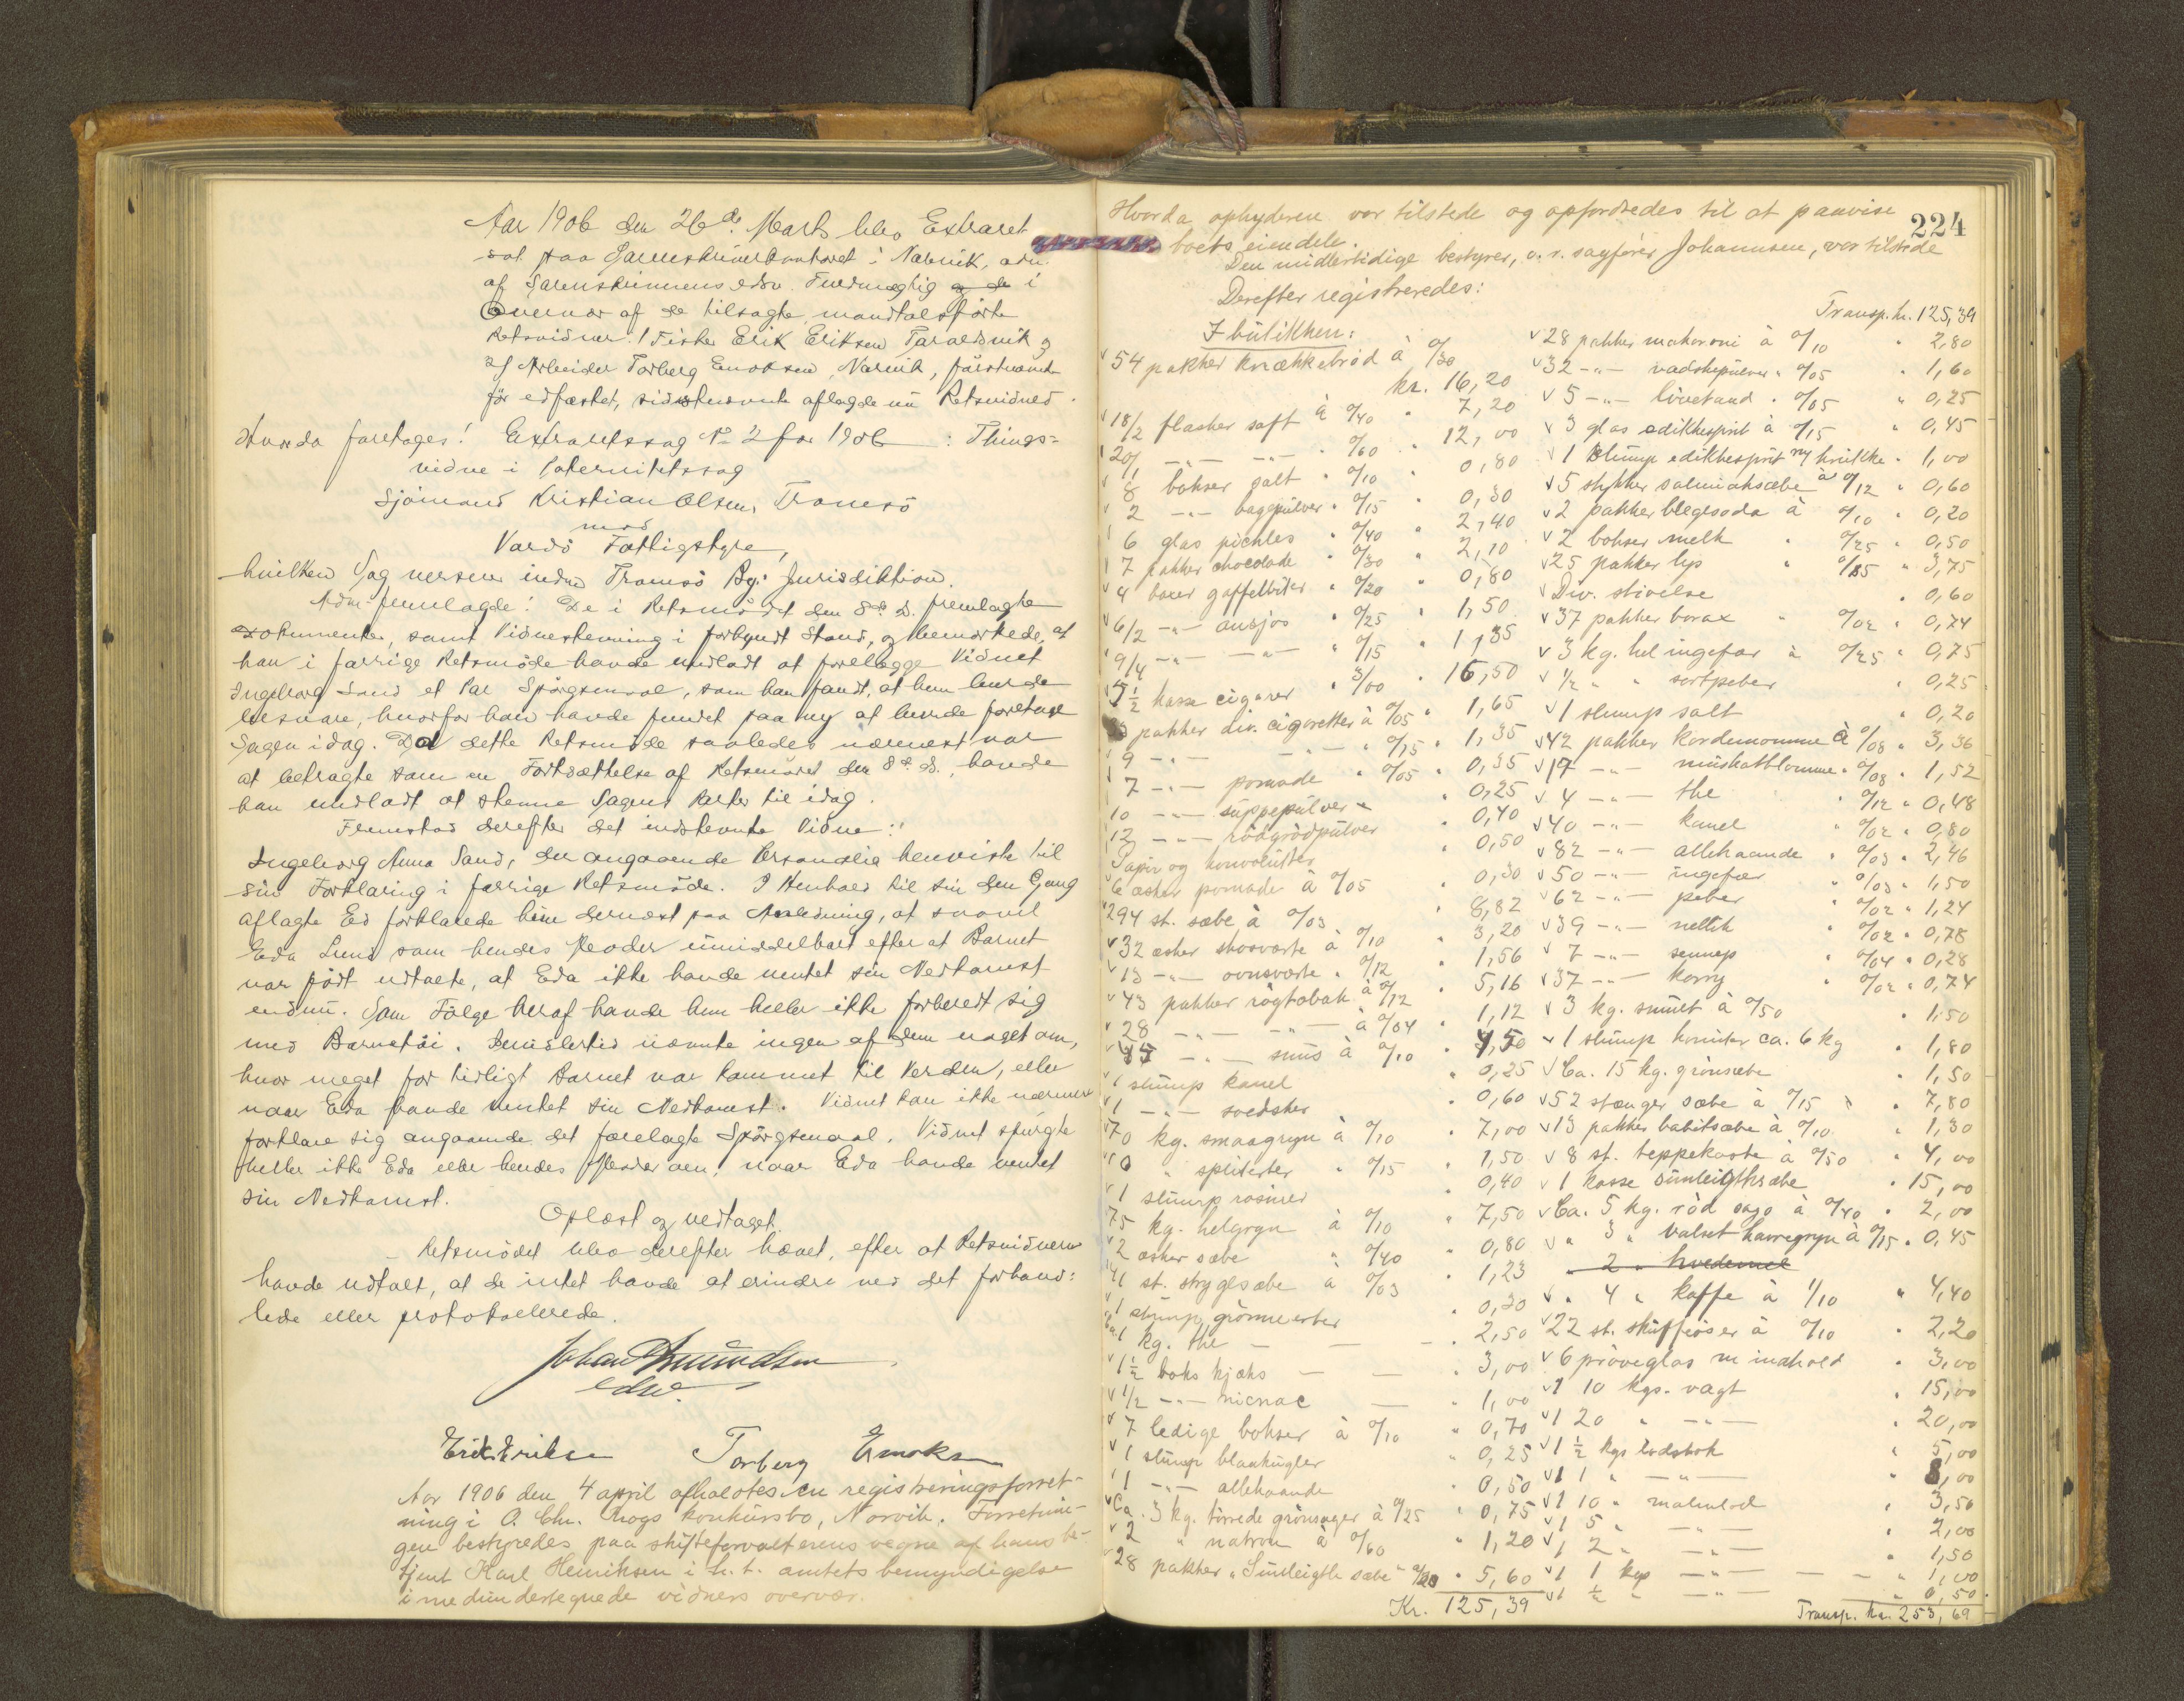 Aar 1906 den 26de Marts blev Extraret
sat paa Sorenskriverkontoret i Narvik, adm.
af Sorenskriverens edsv. Fuldmægtig i
Overvær af de tilsagte mandtalsførte
Retsvidner: 1 Fisker Erik Eriksen Taraldsvik og
2) Arbeider Torberg Enoksen, Narvik, førstnævnte
før edfæstet, sidstnævnte aflagde nu Retsvidneed.
Hvorda foretages: Extraretssag No 2 for 1906: Things-
vidne i Paternitetssag
Sjømand Kristian Olsen, Tromsø
mod
Vardø Fattigstyre,
hvilken Sag verserer under Tromsø By: Jurisdiktion.
Adm. fremlagde: De i Retsmødet den 8de d. fremlagte
Dokumenter, samt Vidnestevning i forkyndt Stand, og bemærkede, at
han i forrige Retsmøde havde undladt at forelægge Vidnet
Ingeborg Sand et Par Spørgsmaal, som han fandt, at hun burde
besvare, hvorfor han havde fundet paa ny at burde foretage
Sagen idag. Da dette Retsmøde saaledes nærmest var
at betragte som en Fortsættelse af Retsmødet den 8de d., havde
han undladt at stevne Sagens Parter til idag.
Fremstod derefter det indstevnte Vidne:
Ingeborg Anna Sand, der angaaende Personalia henviste til
sin Forklaring i forrige Retsmøde. I Henhold til sin den Gang
aflagte Ed forklarede hun dernæst paa Anledning, at saavel
Eda Lund som hendes Moder umiddelbart efter at Barnet
var født udtalte, at Eda ikke havde ventet sin Nedkomst
endnu. Som Følge heraf havde hun heller ikke forberedt sig
med Barnetøi. Imidlertid nævnte ingen af dem noget om,
hvor meget for tidligt Barnet var kommet til Verden, eller
naar Eda havde ventet sin Nedkomst. Vidnet kan ikke nærmere
forklare sig angaaende det forelagte Spørgsmaal. Vidnet spurgte
heller ikke Eda eller hendes Moder om, naar Eda havde ventet
sin Nedkomst.
Oplæst og vedtaget.
Retsmødet blev derefter hævet, efter at Retsvidnerne
havde udtalt, at de intet havde at erindre ved det forhand-
lede eller protokollerede.
Johan Amundsen
edsv.
Erik Eriksen Torberg Enoksen
Aar 1906 den 4 april afholdtes en registreringsforret-
ning i O. Chr. konkursbo, Narvik. Forretnin-
gen bestyredes paa skifteforvalterens vegne af hans be-
tjent Karl Henriksen i h. t. amtets bemyndigelse
i medundertegnede vidners overvær.
224
Hvorda opbyderen var tilstede og opfordredes til at paavise
boets eiendele.
Den midlertidige bestyrer, o. r. sagfører Johannsen, var tilstede
Derefter registreredes:
I butikken:
54 pakker knækkebrød à 0/30 kr. 16,20
18/2 flasker saft à 0/40 " 7,20
20/1 -"- -"- " 0/60 " 12,00
8 bokser salt " 0/10 " 0,80
2 -"- bagepulver " 0/15 " 0,30
6 glas pickles " 0/40 " 2,40
7 pakker chocolade " 0/30 " 2,10
4 boxer gaffelbiter " 0/20 " 0,80
6/2 -"- ansjos " 0/25 " 1,50
9/4 -"- -"- " 0/15 " 1,35
5½ kasse cigarer " 3/00 " 16,50
pakker div. cigaretter à 0/05 " 1,65
9 -"- -"- " 0/15 " 1,35
7 -"- pomade " 0/05 " 0,35
10 -"- suppepulver " 0,25
12 -"- rødgrødpulver " 0,40
Papir og konvolutter " 0,50
6 æsker pomade à 0/05 " 0,30
294 st. sæbe à 0/03 " 8,82
32 æsker skosværte à 0/10 " 3,20
13 -"- ovnsværte " 0/12 " 1,56
43 pakker røgtobak à 0/12 " 5,16
28 -"- -"- à 0/04 " 1,12
45 -"- snus à 0/10 " 4,50
1 slump kanel " 0,25
1 -"- svedsker " 0,60
70 kg. smaagryn à 0/10 " 7,00
10 " spliterter " 0/15 " 1,50
1 slump rosiner " 0,40
75 kg. helgryn à 0/10 " 7,50
2 æsker sæbe " 0/40 " 0,80
41 st. strygesæbe à 0/03 " 1,23
1 slump grønneerter " 0,30
Ca. 1 kg. the " 2,50
1½ boks kjæks " 3,00
1/2 -"- nicnac " 1,00
7 ledige bokser à 0/10 " 0,70
1 slump blaakugler " 0,25
1 -"- allehaande " 0,50
Ca. 3 kg. tørrede grønsager à 0/25 " 0,75
2 " natron à 0/60 " 1,20
28 pakker "Sunleigth sæbe" à 0/20 " 5,60
Kr. 125,39
Transp. kr. 125,39
28 pakker makaroni à 0/10 " 2,80
32 -"- vadskepulver " 0/05 " 1,60
5 -"- løvetand " 0/05 " 0,25
3 glas edikkesprit à 0/15 " 0,45
1 slump edikkesprit m/ krukke " 1,00
5 stykker salmiaksæbe à 0/12 " 0,60
2 pakker blegesoda à 0/10 " 0,20
2 bokser melk " 0/25 " 0,50
25 pakker lys " 0/15 " 3,75
Div. stivelse " 0,60
37 pakker borax " 0/02 " 0,74
3 kg. hel ingefær à 0/25 " 0,75
1/2 " " sortpeber " 0,25
1 slump salt " 0,20
42 pakker kardemomme à 0/08 " 3,36
19 -"- muskatblomme " 0/08 " 1,52
4 -"- the " 0/12 " 0,48
40 -"- kanel " 0/02 " 0,80
82 -"- allehaande " 0/03 " 2,46
50 -"- ingefær " 0/03 " 1,50
62 -"- peber " 0/02 " 1,24
39 -"- nellik " 0/02 " 0,78
7 -"- sennep " 0/04 " 0,28
37 -"- korry " 0/02 " 0,74
3 kg. smult à 0/50 " 1,50
1 slump korinter ca. 6 kg " 1,80
Ca. 15 kg. grønsæbe " 1,50
52 stænger sæbe à 0/15 " 7,80
13 pakker babitsæbe à 0/10 " 1,30
8 st. teppekoste à 0/50 " 4,00
1 kasse sunleigthsæbe " 15,00
Ca. 5 kg. rød sago à 0/40 " 2,00
" 3 " valset havregryn à 0/15 " 0,45
" 2 " hvedemel
" 4 " kaffe à 1/10 " 4,40
22 st. skuffeøser à 0/10 " 2,20
6 prøveglas m indhold " 3,00
1 10 kgs. vægt " 15,00
1 20 " -"- " 20,00
1 ½ kgs lodsbok " 5,00
1 1 " -"- " 8,00
1 10 " malmlod " 3,50
1 5 " -"- " 2,00
1 2 " -"- " 1,50
1 1 kgs -"- " 1,00
1 ½ " -"- " 0,50
Transp. kr. 253,69